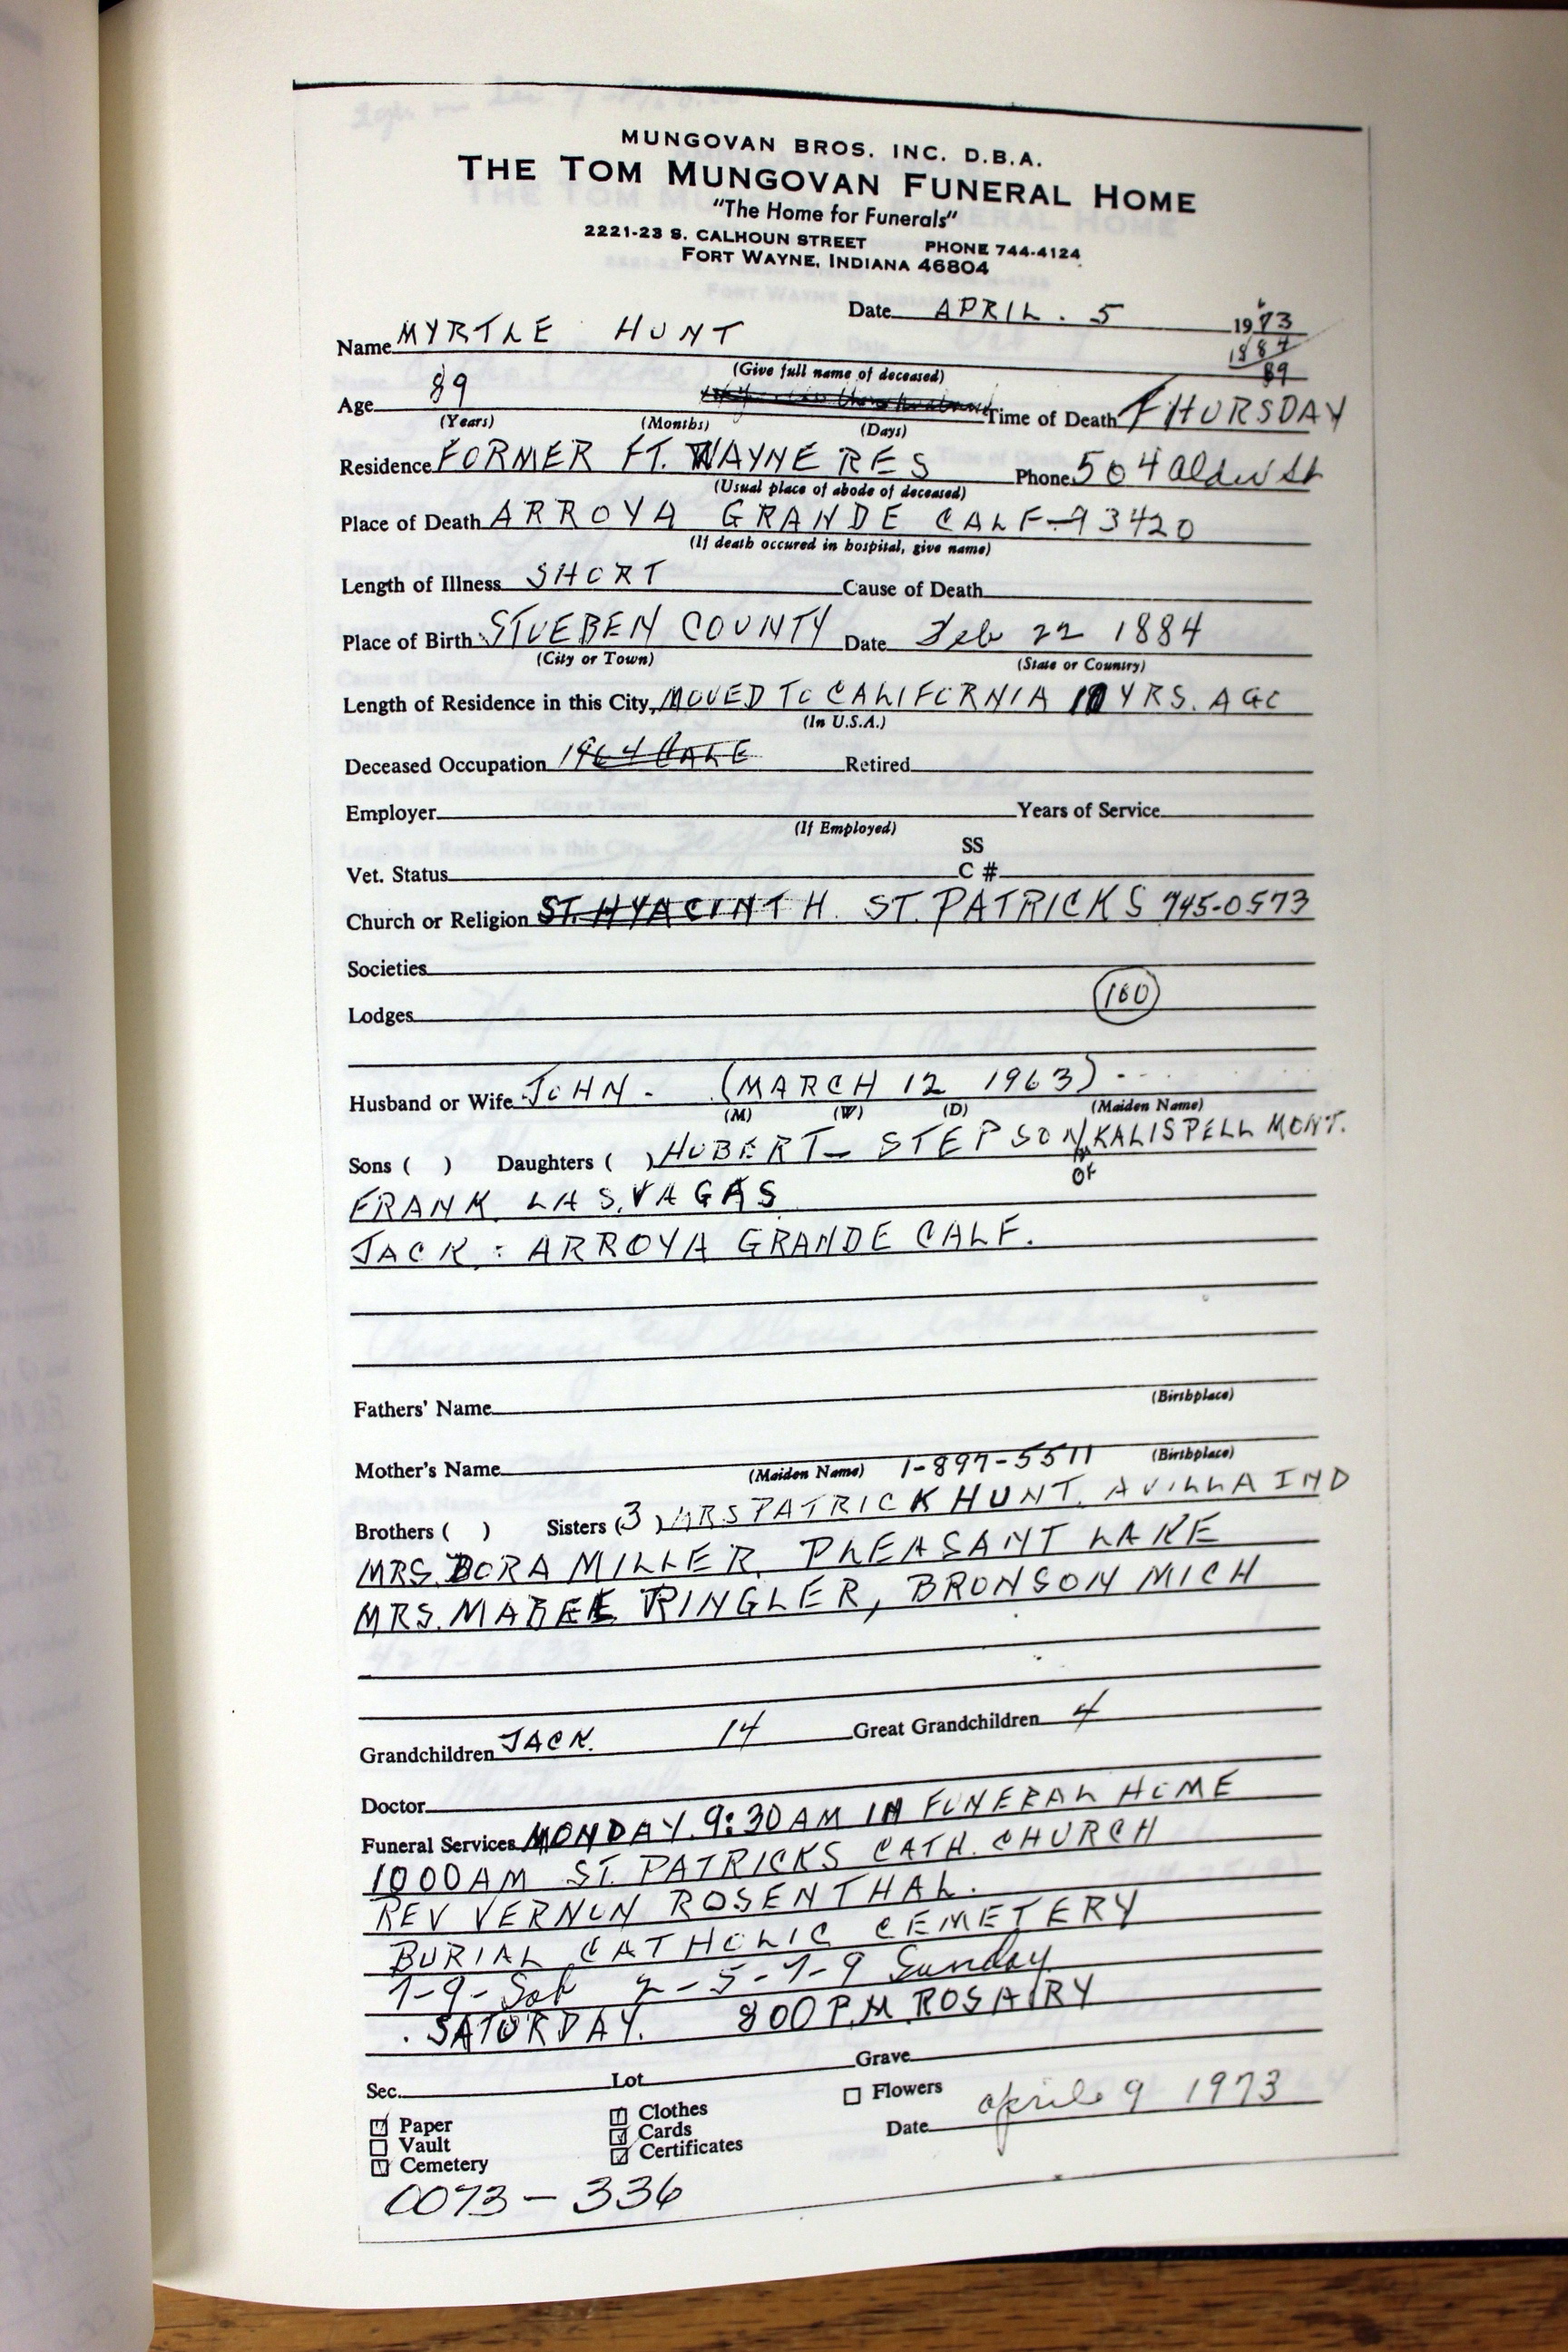 MUNGOVAN BROS. INC. D.B.A.
THE TOM MUNGOVAN FUNERAL HOME
"The Home for Funerals"
2221-23 S. CALHOUN STREET PHONE 744-4124
FORT WAYNE, INDIANA 46804
Date APRIL. 5 1973
1884
89
Name MYRTLE HUNT
(Give full name of deceased)
Age 89 Time of Death THURSDAY
(Years) (Months) (Days)
Residence FORMER FT. WAYNE RES Phone 504 Alder St
(Usual place of abode of deceased)
Place of Death ARROYA GRANDE CALF-93420
(If death occured in hospital, give name)
Length of Illness SHORT Cause of Death
Place of Birth STUEBEN COUNTY Date Feb 22 1884
(City or Town) (State or Country)
Length of Residence in this City MOVED TO CALIFORNIA 10 YRS. AGO
(In U.S.A.)
Deceased Occupation 1964 CALF Retired
Employer Years of Service
(If Employed)
SS
Vet. Status C #
Church or Religion ST. HYACINTH. ST. PATRICKS 745-0573
Societies
Lodges
160
Husband or Wife JOHN - (MARCH 12 1963)
(M) (W) (D) (Maiden Name)
Sons ( ) Daughters ( ) HUBERT - STEPSON KALISPELL MONT.
OF
FRANK. LAS. VAGAS
JACK : ARROYA GRANDE CALF.
Fathers' Name
(Birthplace)
Mother's Name
(Maiden Name) 1-897-5511 (Birthplace)
Brothers ( ) Sisters (3) MRS PATRICK HUNT. AVILLA IND
MRS. DORA MILLER. PLEASANT LAKE
MRS. MABEL RINGLER, BRONSON MICH
Grandchildren JACK. 14 Great Grandchildren 4
Doctor
Funeral Services MONDAY. 9:30 AM IN FUNERAL HOME
1000 AM ST. PATRICKS CATH. CHURCH
REV VERNON ROSENTHAL.
BURIAL CATHOLIC CEMETERY
7-9-Sat 2-5-7-9 Sunday
. SATURDAY. 800 P.M. ROSARY
Sec. Lot Grave
Paper Clothes Flowers
Vault Cards Date april 9 1973
Cemetery Certificates
0073-336